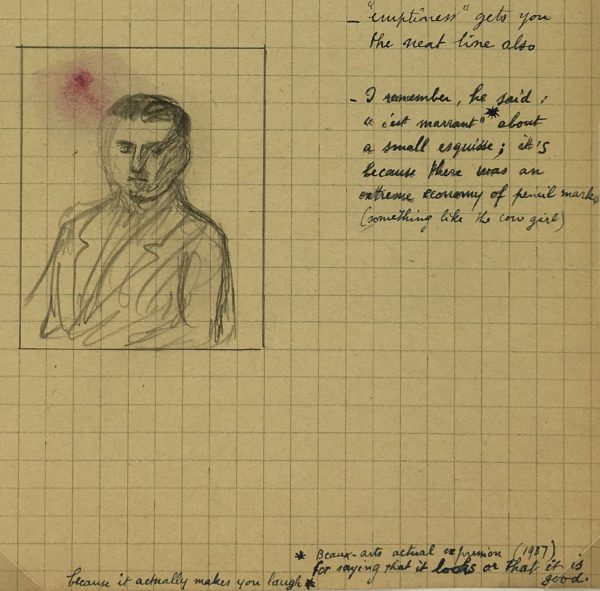 – "emptiness" gets you
the neat line also
– I remember, he said :
" c'est marrant" * about
a small esquisse ; it's
because there was an
extreme economy of pencil marks
(something like the cow girl)
* Beaux-arts actual expression (1937)
for saying that it looks or that it is
good.
because it actually makes you laugh *